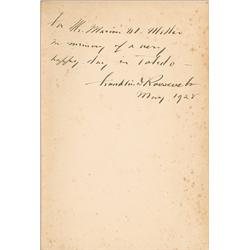 For Mr. Marion W. Miller
in memory of a very
happy day in Toledo —
Franklin D Roosevelt
May 1928